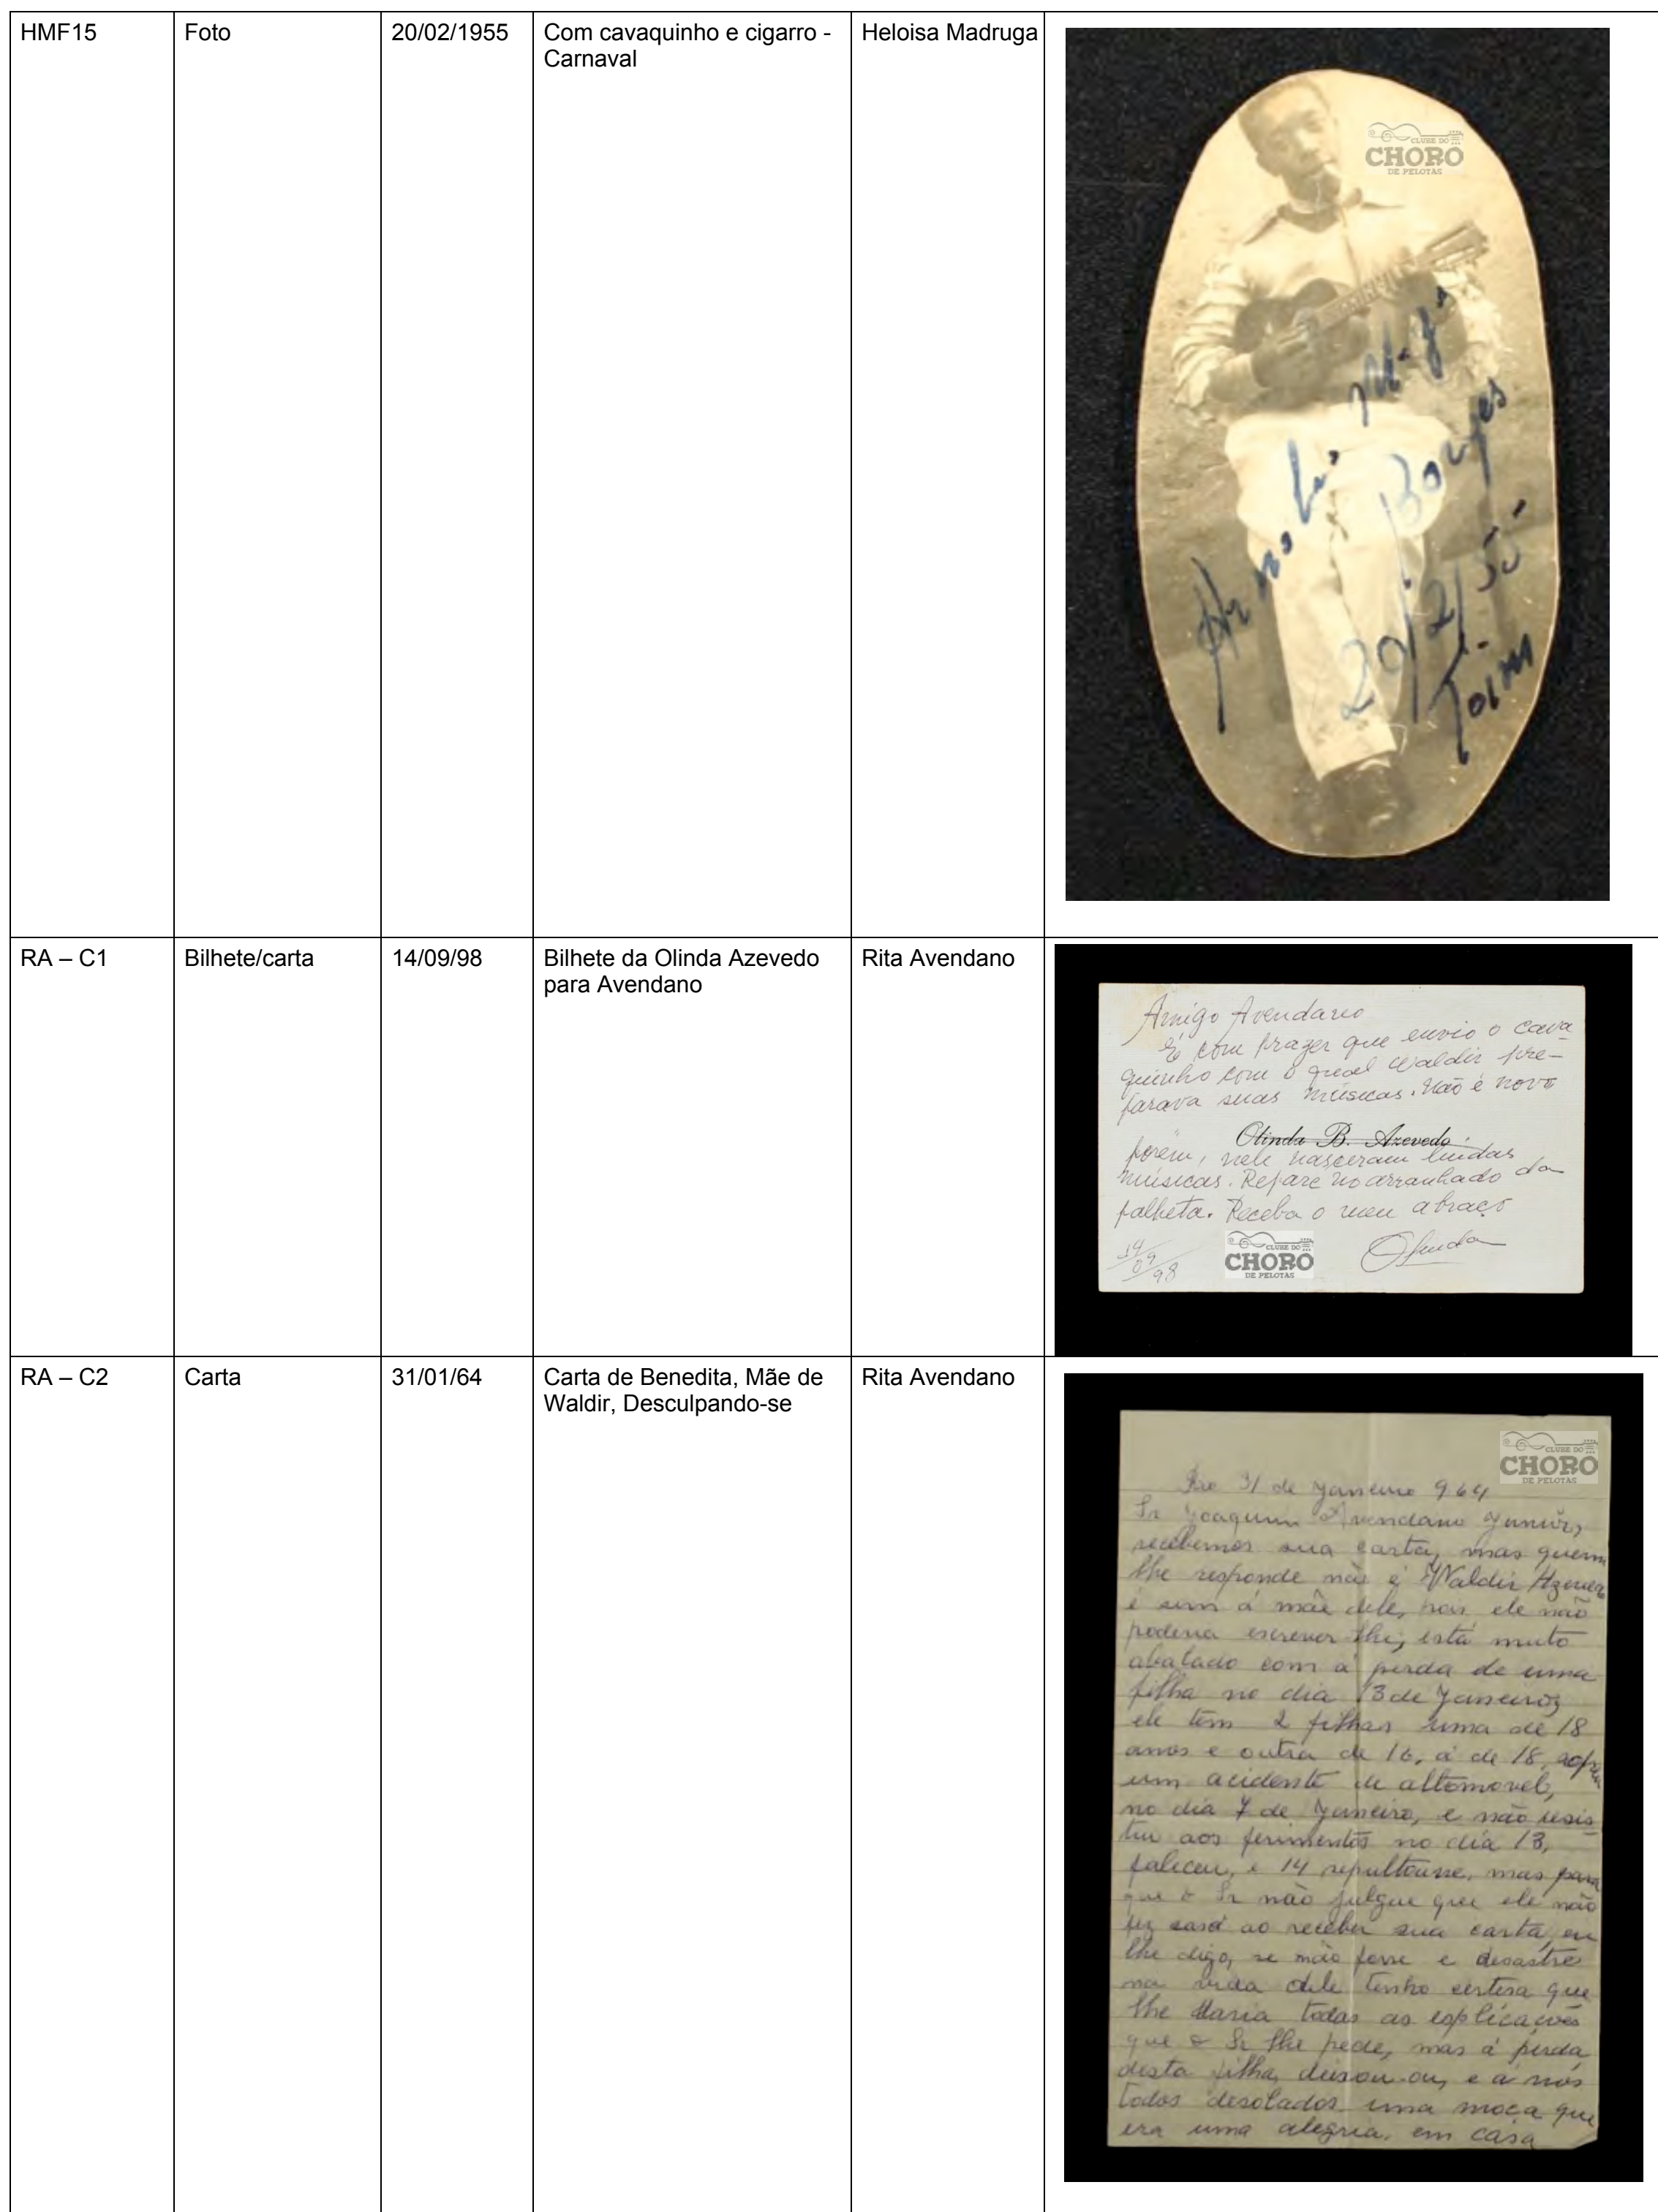 HMF15
Foto
20/02/1955
Com cavaquinho e cigarro -
Carnaval
Heloisa Madruga
CLUBE DO
CHORO
DE PELOTAS
Borges
20/2/55
RA – C1
Bilhete/carta
14/09/98
Bilhete da Olinda Azevedo
para Avendano
Rita Avendano
Amigo Avendano
É com prazer que envio o cava
quinho com o qual Waldir pre-
parava suas músicas. Não é novo
Olinda B. Azevedo
porém, nele nasceram lindas
músicas. Repare no arranhado da
palheta. Receba o meu abraço
14/09/98
CLUBE DO
CHORO
DE PELOTAS
Olinda
RA – C2
Carta
31/01/64
Carta de Benedita, Mãe de
Waldir, Desculpando-se
Rita Avendano
CLUBE DO
CHORO
DE PELOTAS
Rio 31 de Janeiro 964
Sr Joaquim Avendano Junior,
recebemos sua carta, mas quem
lhe responde não é Waldir
é sim á mãe dele, pois ele não
poderia escrever-lhe, está muto
abalado com a perda de uma
filha no dia 13 de Janeiro,
ele tem 2 filhas uma de 18
anos e outra de 16, á de 18,
um acidente de altomovel,
no dia 7 de Janeiro, e não resis
tiu aos ferimentos no dia 13,
faleceu, e 14 sepultousse, mas para
que o Sr não julgue que ele não
fez caso ao receber sua carta, eu
lhe digo, se não fosse o desastre
na vida dele tenho certesa que
lhe daria todas as esplicações
que o Sr lhe pede, mas á perda
desta filha, deixou-ou, e a nós
todos desolados uma moça que
era uma alegria, em casa